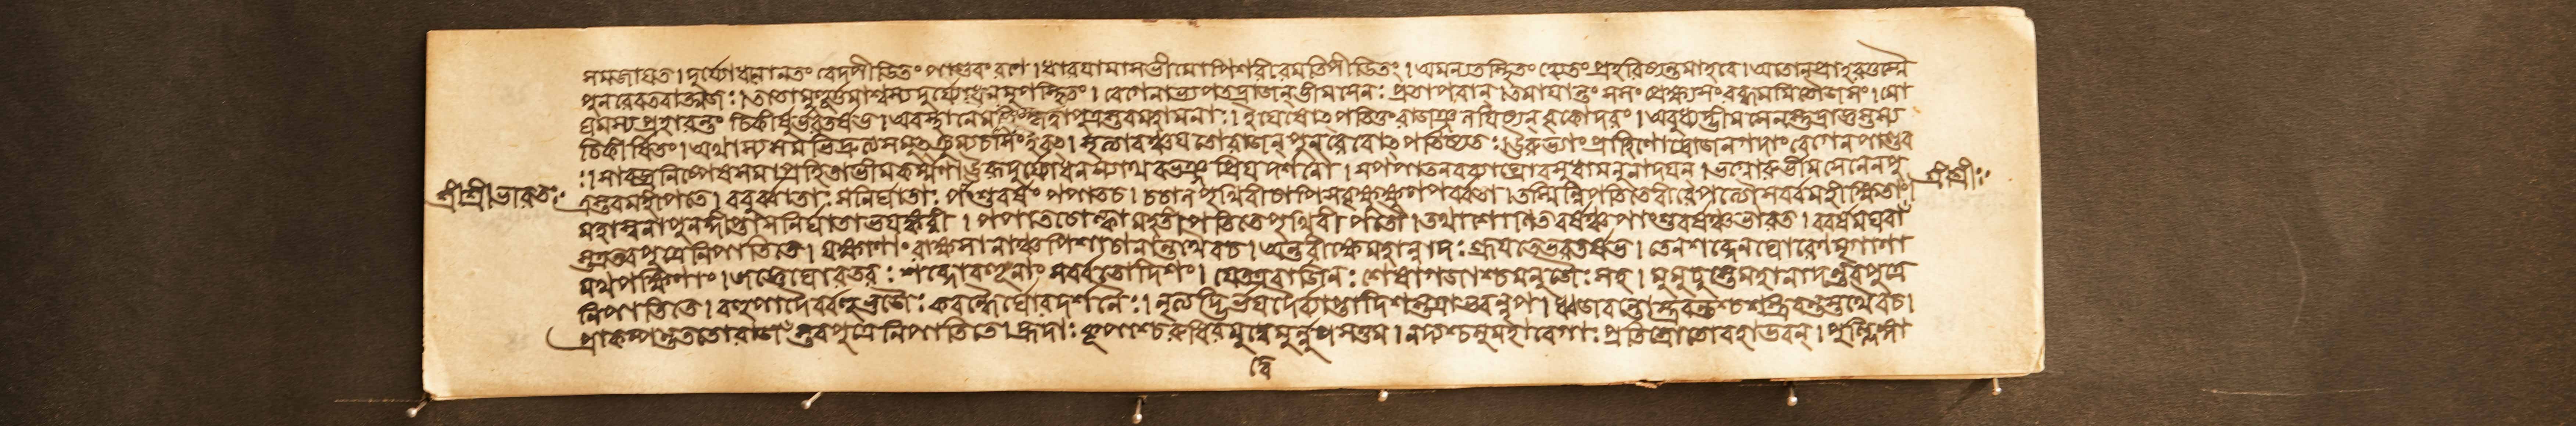 সমজায়ত। দুর্য্যোধনো নতং বেদ পীডিতং পাণ্ডবং রণে। ধারয়ামাস ভীমোপি শরীরমতিপীডিতং। অমন্যত স্থিতং হ্যেতং প্রহরিষ্যন্তমাহবে। অতো ন প্রাহরত্তস্মৈ
পুনরেব তবাত্মজঃ। ততো মুহূর্ত্তমাশ্বস্য দুর্য্যোধনমুপস্থিতং। বেগেনাভ্যপতদ্রাজন্ ভীমসেনঃ প্রতাপবান্। তমায়ান্তং সসংপ্রেক্ষ্য সংরব্ধমমিতৌজসং। মো
ঘমস্য প্রহারন্তং চিকীর্ষুর্ভরতর্ষভ। অবস্থানে মতিং কৃত্বা পুত্রস্তব মহামনাঃ। ইয়েষোত্পতিতুং রাজঞ্ছলয়িষ্যন্ বৃকোদরং। অবুধ্যদ্ভীমসেনস্তদ্রাজ্ঞস্তস্য
চিকীর্ষিতং। অথাস্য সমভিদ্রুত্য সমুত্ক্রম্য চ সিংহবৎ। সৃত্যা বঞ্চয়তো রাজন্ পুনরেবোত্পতিষ্যতঃ। ঊরুভ্যাং প্রাহিণোদ্রাজন্ গদাং বেগেন পাণ্ডব
ঃ। সা বজ্রনিষ্পেষসমা প্রহিতা ভীমকর্ম্মণা। ঊরূ দুর্য্যোধনস্যাথ বভঞ্জ প্রিয়দর্শনৌ। স পপাত নরব্যাঘ্রো বসুধামনুনাদয়ন্। ভগ্নোরুর্ভীমসেনেন পু
শ্রীশ্রীভারতঃ
শ্রীশ্রীঃ
ত্রস্তব মহীপতে। ববুর্ব্বাতাঃ সনির্ঘাতাঃ পাংশুবর্ষং পপাত চ। চচাল পৃথিবী চাপি সবৃক্ষক্ষুপপর্ব্বতা। তস্মিন্নিপতিতে বীরে পত্যৌ সর্ব্বমহীক্ষিতাং।
মহাস্বনা পুনর্দ্দীপ্তা সনির্ঘাতা ভয়ঙ্করী। পপাত চোল্কা মহতী পতিতে পৃথিবীপতৌ। তথা শোণিতবর্ষঞ্চ পাংশুবর্ষঞ্চ ভারত। ববর্ষ মঘবাঁ
স্তত্র তব পুত্রে নিপাতিতে। যক্ষাণাং রাক্ষসানাঞ্চ পিশাচানান্তথৈব চ। অন্তরীক্ষে মহানাদঃ শ্রূয়তে ভরতর্ষভ। তেন শব্দেন ঘোরেণ মৃগাণা
মথ পক্ষিণাং। জজ্ঞে ঘোরতরঃ শব্দো বহূনাং সর্ব্বতোদিশং। যে তত্র বাজিনঃ শেষা গজাশ্চ মনুজৈঃ সহ। মুমুচুস্তে মহানাদং তব পুত্রে
নিপাতিতে। বহুপাদৈর্ব্বহুভুজৈঃ কবন্ধৈর্ঘোরদর্শনৈঃ। নৃত্যদ্ভির্ভয়দৈর্ব্যাপ্তা দিশস্তত্রাভবন্নৃপ। ধ্বজবন্তোস্ত্রবন্তশ্চ শস্ত্রবন্তস্তথৈব চ।
প্রাকম্পন্ত ততো রাজংস্তব পুত্রে নিপাতিতে। হ্রদাঃ কূপাশ্চ রুধিরমুদ্বেমুর্নৃপসত্তম। নদ্যশ্চ সুমহাবেগাঃ প্রতিস্রোতোবহাভবন্। পুল্লিঙ্গা